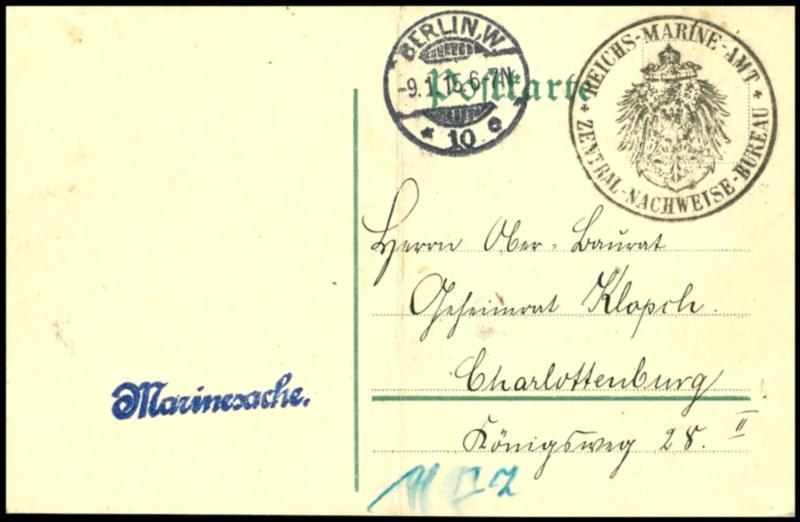 BERLIN, W
-9.1.15.6-7N.
* 10 e
Postkarte
REICHS-MARINE-AMT
* ZENTRAL-NACHWEISE-BUREAU *
Herrn Ober-Baurat
Geheimrat Klopsch.
Charlottenburg
Königsweg 28. II
Marinesache.